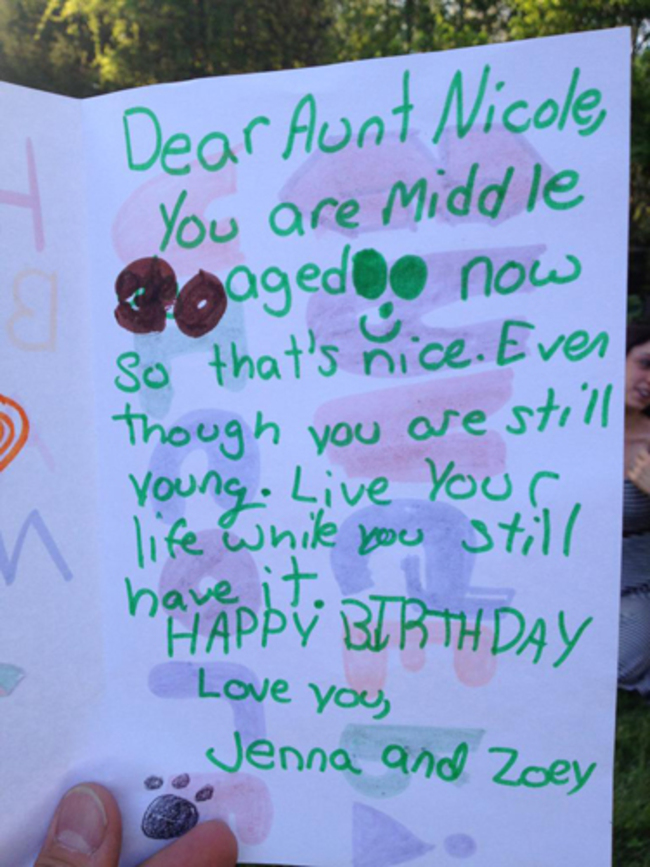 Dear Aunt Nicole,
You are Middle
aged now
So that's nice. Even
though you are still
young. Live Your
life while you still
have it.
HAPPY BIRTHDAY
Love you,
Jenna and Zoey